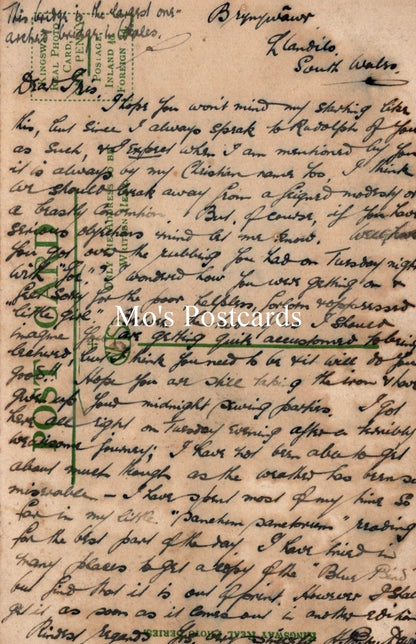 This bridge is the largest one-
arched bridge in Wales.
Brynywawr
Llandilo.
South Wales.
KINGSWAY
REAL PHOTO
POST CARD
POSTAGE
INLAND
FOREIGN
Dear Iris,
I hope you won't mind my starting like
this, but since I always speak to Rudolph of you
as such, & I expect when I am mentioned by you
it is always by my Christian name too, I think
we should break away from a feigned modesty or
a beastly convention. But, of course, if you have
serious objections mind let me know. Well, have
you got over the rubbing you had on Tuesday night
with "you" & I wondered how you were getting on &
felt sorry for the poor helpless, forlorn & oppressed
"little girl"
I should
imagine you are getting quite accustomed to being
lectured but I think you need to be & it will do you
good. I hope you are still taking the iron & have
given up your midnight sewing parties. I got
here all right on Tuesday evening after a terribly
wearisome journey. I have not been able to get
about much though as the weather has been so
miserable - I have spent most of my time so
far in my little "sanctum sanctorum" reading
for the best part of the day. I have tried in
many places to get a copy of the "Blue Bird"
but find that it is out of print. However I shall
get it as soon as it comes out in another edition
Kindest regards
POST CARD
Mo's Postcards
KINGSWAY REAL PHOTO SERIES